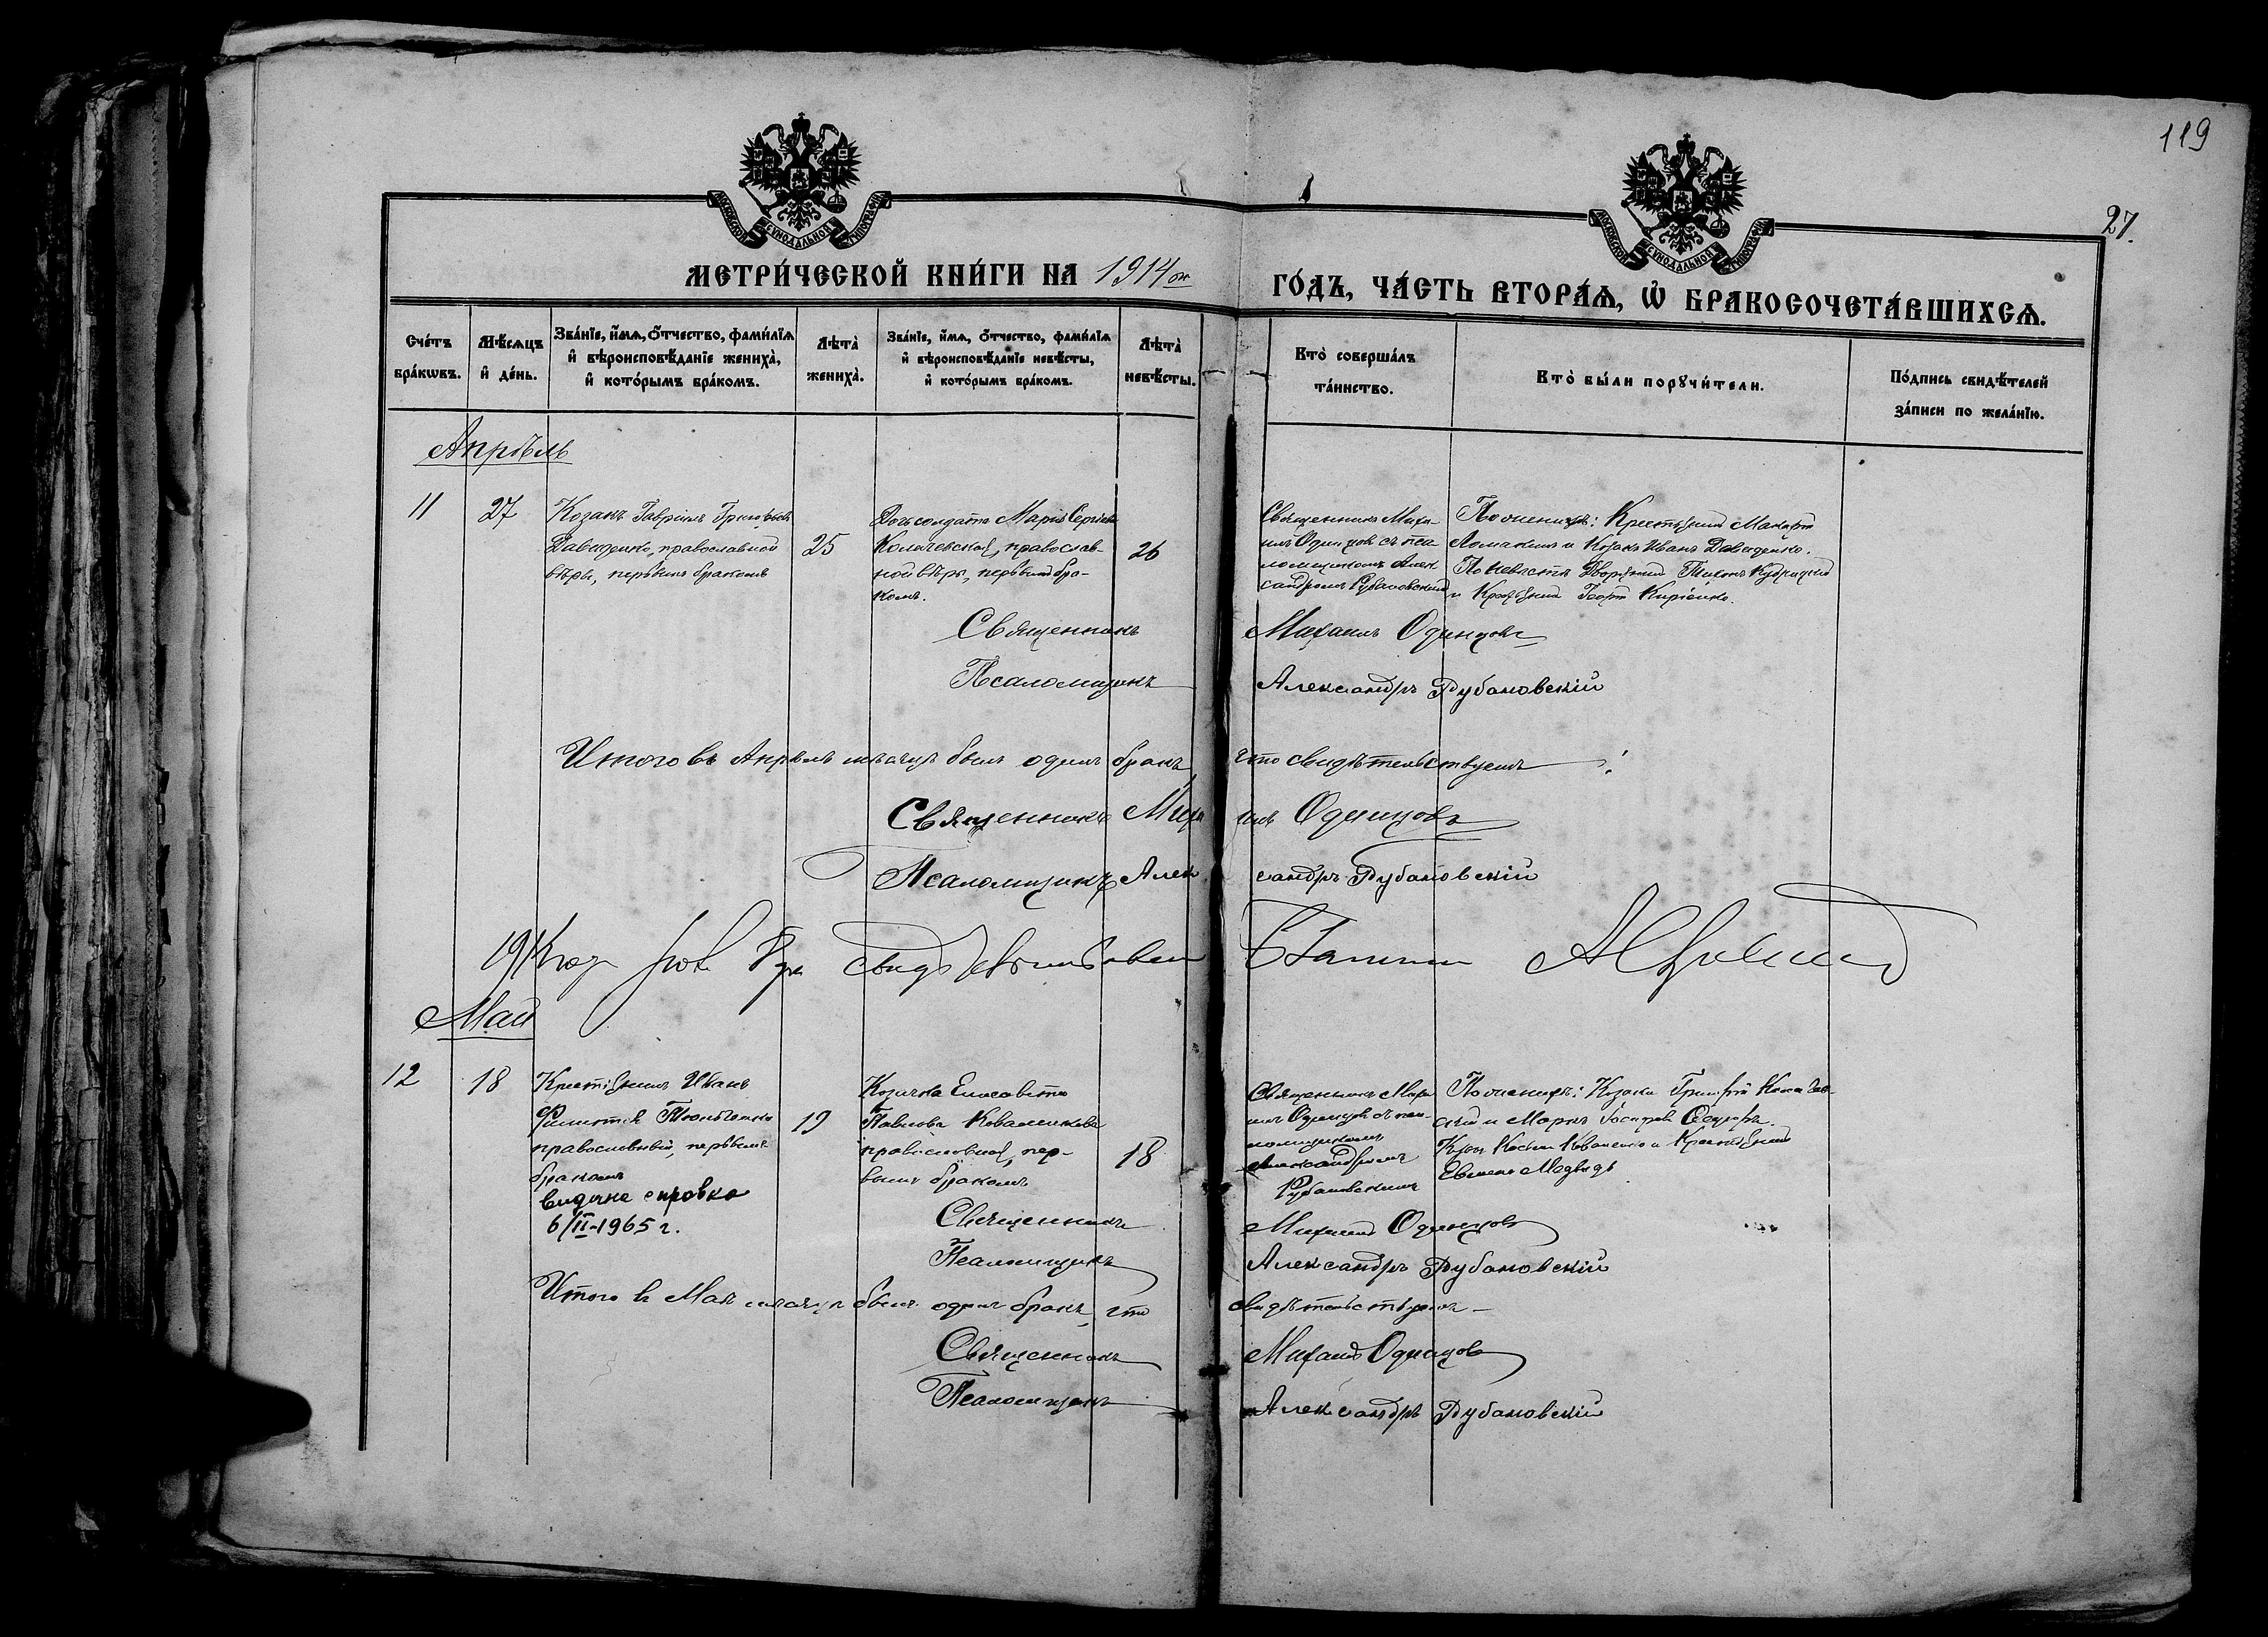 119
27.
МОСКОВСКОЙ СѴНОДАЛЬНОЙ ТИПОГРАФІИ
МОСКОВСКОЙ СѴНОДАЛЬНОЙ ТИПОГРАФІИ
МЕТРИ́ЧЕСКОЙ КНИ́ГИ НА 1914 ой ГО́ДЪ, ЧА́СТЬ ВТОРА́Ѧ, Ѡ҆ БРАКОСОЧЕТА́ВШИХСѦ.
Сче́тъ бра́кѡвъ.
Мѣ́сѧцъ и҆ де́нь.
Зва́нїе, и҆́мѧ, ѻ҆́тчество, фами́лїѧ
и҆ вѣроисповѣ́данїе жениха̀,
и҆ кото́рымъ бра́комъ.
Лѣ́та̀ жениха̀.
Зва́нїе, и҆́мѧ, ѻ҆́тчество, фами́лїѧ
и҆ вѣроисповѣ́данїе невѣ́сты,
и҆ кото́рымъ бра́комъ.
Лѣ́та̀ невѣ́сты.
Кто̀ соверша́лъ
та́инство.
Кто̀ бы́ли порꙋчи́тели.
По́дпись свидѣ́телей
за́писи по жела́нїю.
Апрѣль
11
27
Козакъ Гавріилъ
Давиденко, православной
вѣры, первымъ бракомъ
25
Дочь солдата Марія
православ-
ной вѣры, первымъ бра-
комъ.
26
Священникъ Миха-
илъ Одинцовъ съ пса-
ломщикомъ Алек
сандромъ Рубановскимъ
По женихѣ: Крестьянинъ
и Козакъ Иванъ Давиденко.
По невѣстѣ Дворянинъ Тихонъ
и Кириенко.
Священникъ Михаилъ Одинцовъ
Псаломщикъ Александръ Рубановскій
Итого въ Апрѣлѣ мѣсяцѣ былъ одинъ бракъ что свидѣтельствуемъ
Священникъ Михаилъ Одинцовъ
Псаломщикъ Александръ Рубановскій
1914 года
Май
12
18
Крестьянинъ Иванъ
православный, первымъ
бракомъ
видана справка
6/II-1965 г.
19
Козачка Елисавета
Павлова
православная, пер-
вымъ бракомъ
18
Священникъ Миха
илъ Одинцовъ съ пса-
ломщикомъ
Александромъ
Рубановскимъ
По женихѣ: Козаки
и Маркъ
и Крестьянинъ
Медвидь
Священникъ Михаилъ Одинцовъ
Псаломщикъ Александръ Рубановскій
Итого въ Маѣ мѣсяцѣ былъ одинъ бракъ, что свидѣтельствуемъ
Священникъ Михаилъ Одинцовъ
Псаломщикъ Александръ Рубановскій